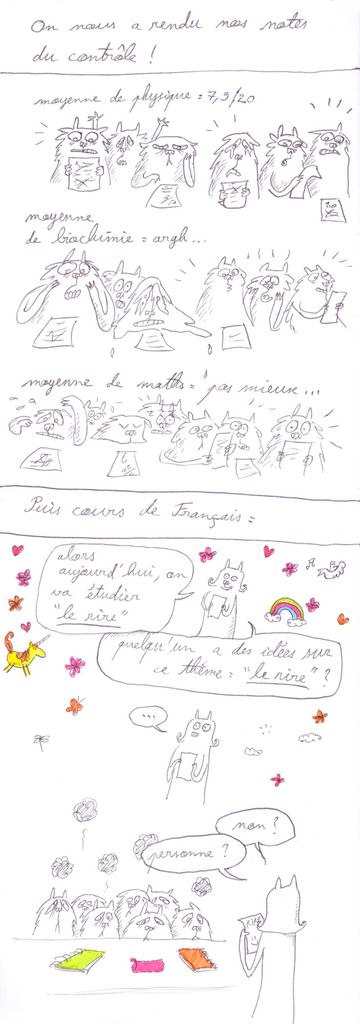 On nous a rendu nos notes
du contrôle !
moyenne de physique = 7,9/20
moyenne
de biochimie = argh...
moyenne de maths = pas mieux...
Puis cours de Français =
alors
aujourd'hui, on
va étudier
"le rire"
quelqu'un a des idées sur
ce thème = "le rire" ?
...
non ?
personne ?